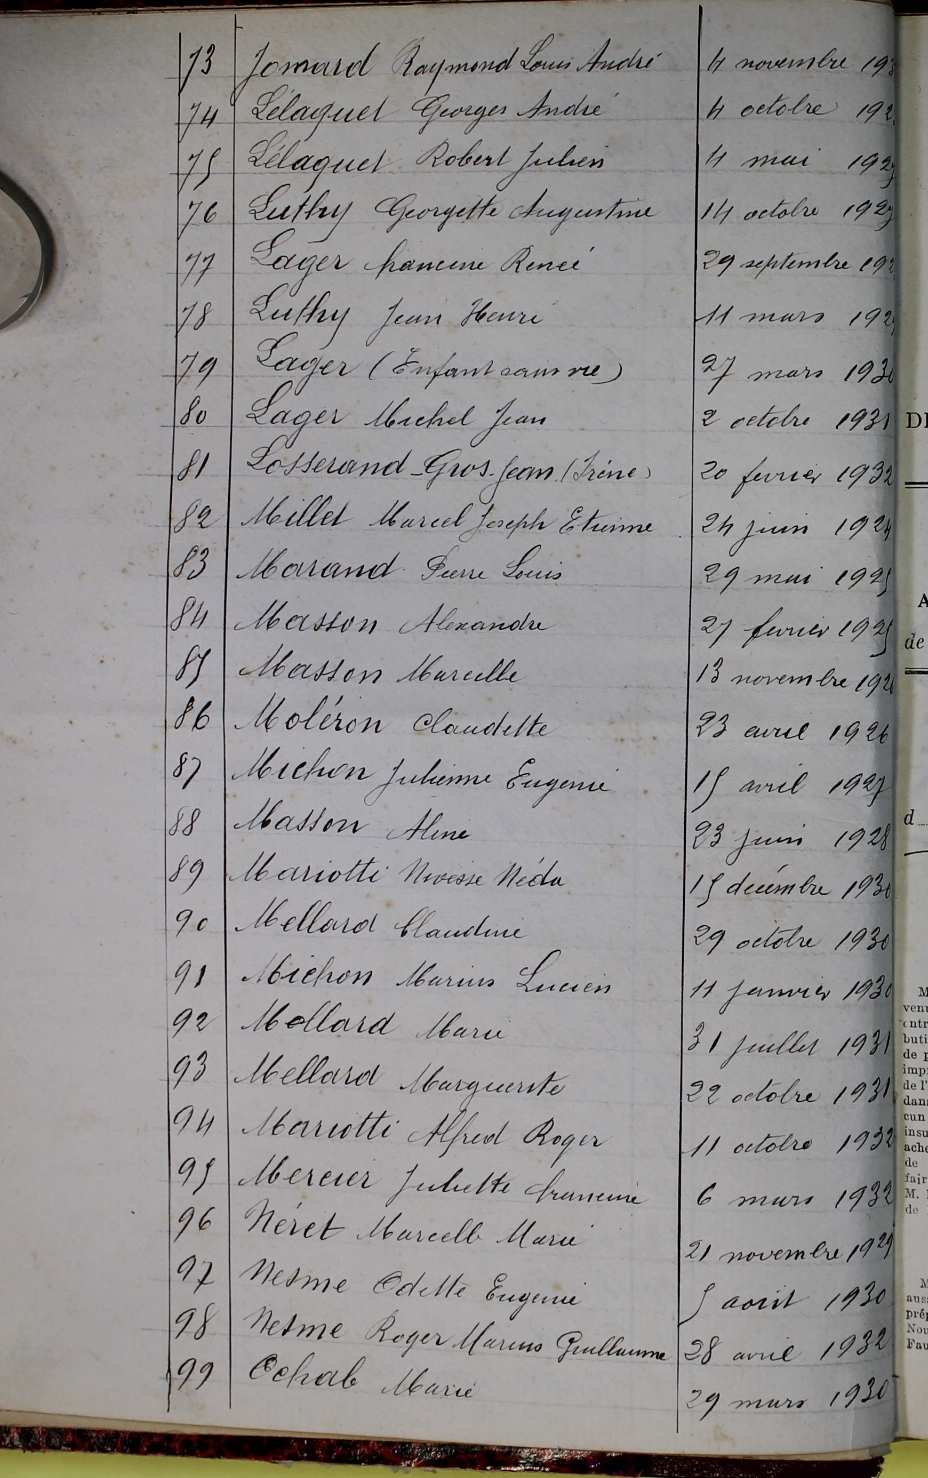 73 Jomard Raymond Louis André 4 novembre 193
74 Lélaquet Georges André 4 octobre 192
75 Lélaquet Robert Julien 4 mai 1925
76 Luthy Georgette Augustine 14 octobre 1927
77 Lager Francine Renée 29 septembre 192
78 Luthy Jean Henri 11 mars 1929
79 Lager (Enfant sans vie) 27 mars 1930
80 Lager Michel Jean 2 octobre 1931
81 Losserand-Gros-Jean (Irène) 20 fevrier 1932
82 Millet Marcel Joseph Etienne 24 juin 1924
83 Marand Pierre Louis 29 mai 1925
84 Masson Alexandre 27 fevrier 1925
85 Masson Marcelle 13 novembre 1926
86 Moléron Claudette 23 avril 1926
87 Michon Julienne Eugenie 15 avril 1927
88 Masson Aline 23 juin 1928
89 Mariotti Néda 15 décembre 1930
90 Mellard Claudine 29 octobre 1930
91 Michon Marius Lucien 11 janvier 1930
92 Mollard Marie 31 juillet 1931
93 Mellard Marguerite 22 octobre 1931
94 Mariotti Alfred Roger 11 octobre 1932
95 Mercier Juliette Francine 6 mars 1932
96 Néret Marcelle Marie 21 novembre 1929
97 Nesme Odette Eugenie 5 aout 1930
98 Nesme Roger Marius Guillaume 28 avril 1932
99 Ochab Marie 29 mars 1930
de
d
de